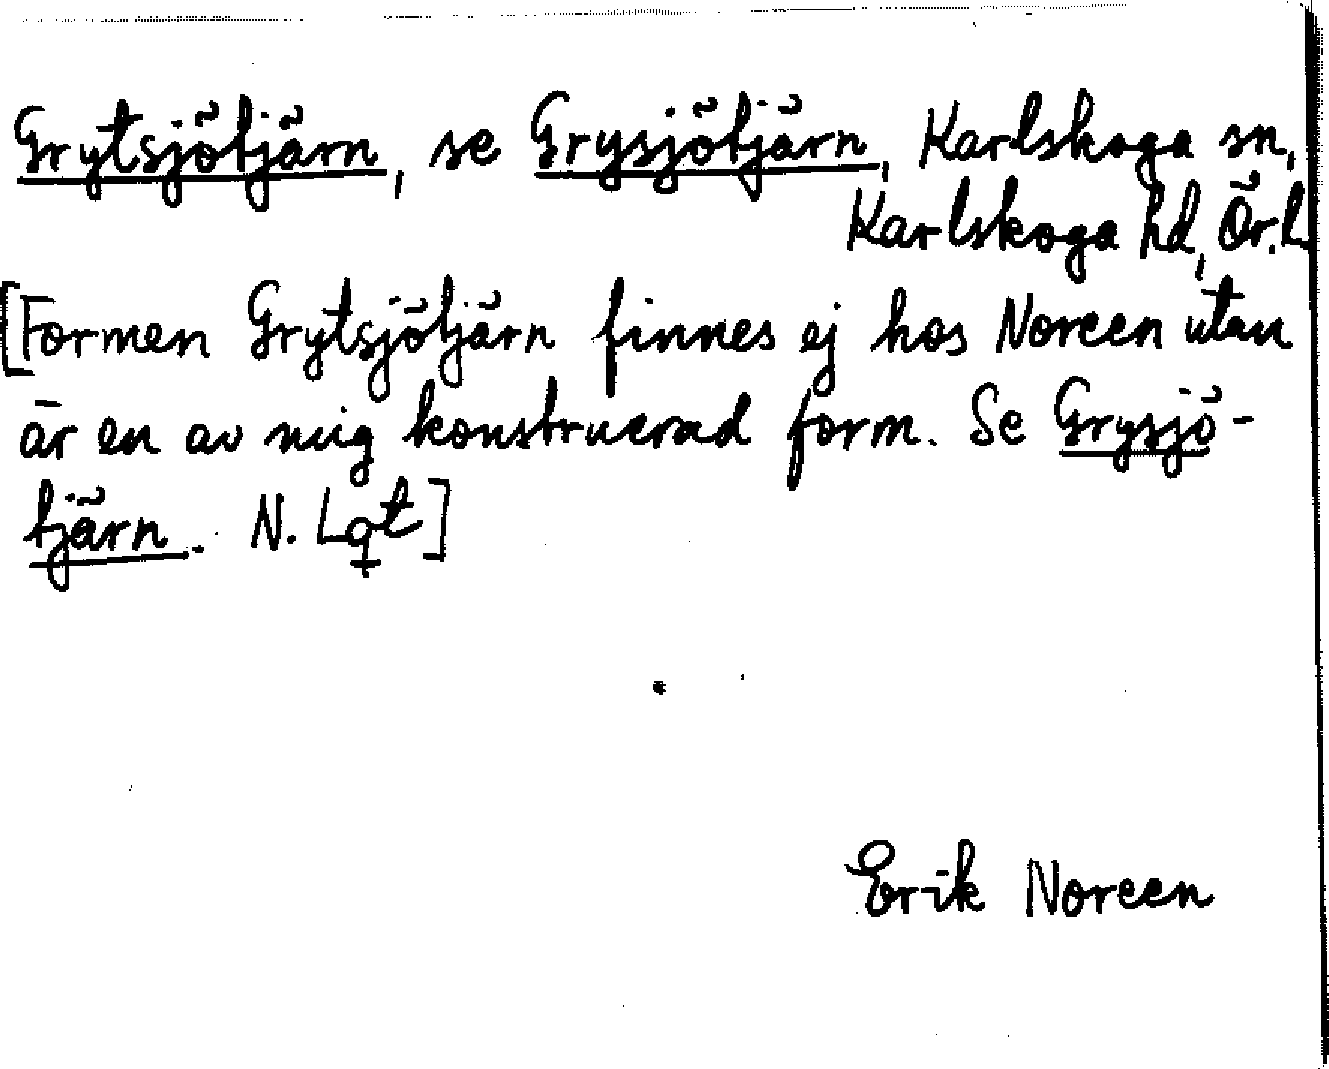 Grytsjötjärn, se Grysjötjärn, Karlskoga sn,
Karlskoga hd, Ör.l
[Formen Grytsjötjärn finnes ej hos Noreen utan
är en av mig konstruerad form. Se Grysjö-
tjärn. N. L]
Erik Noreen